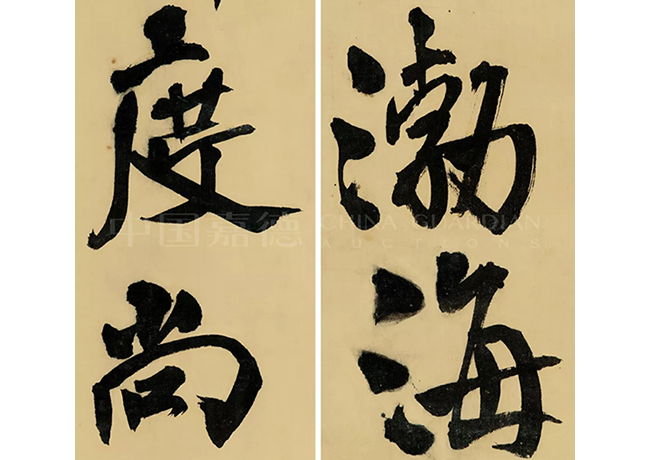 渤海
度尚
中国嘉德 CHINA GUARDIAN
AUCTIONS